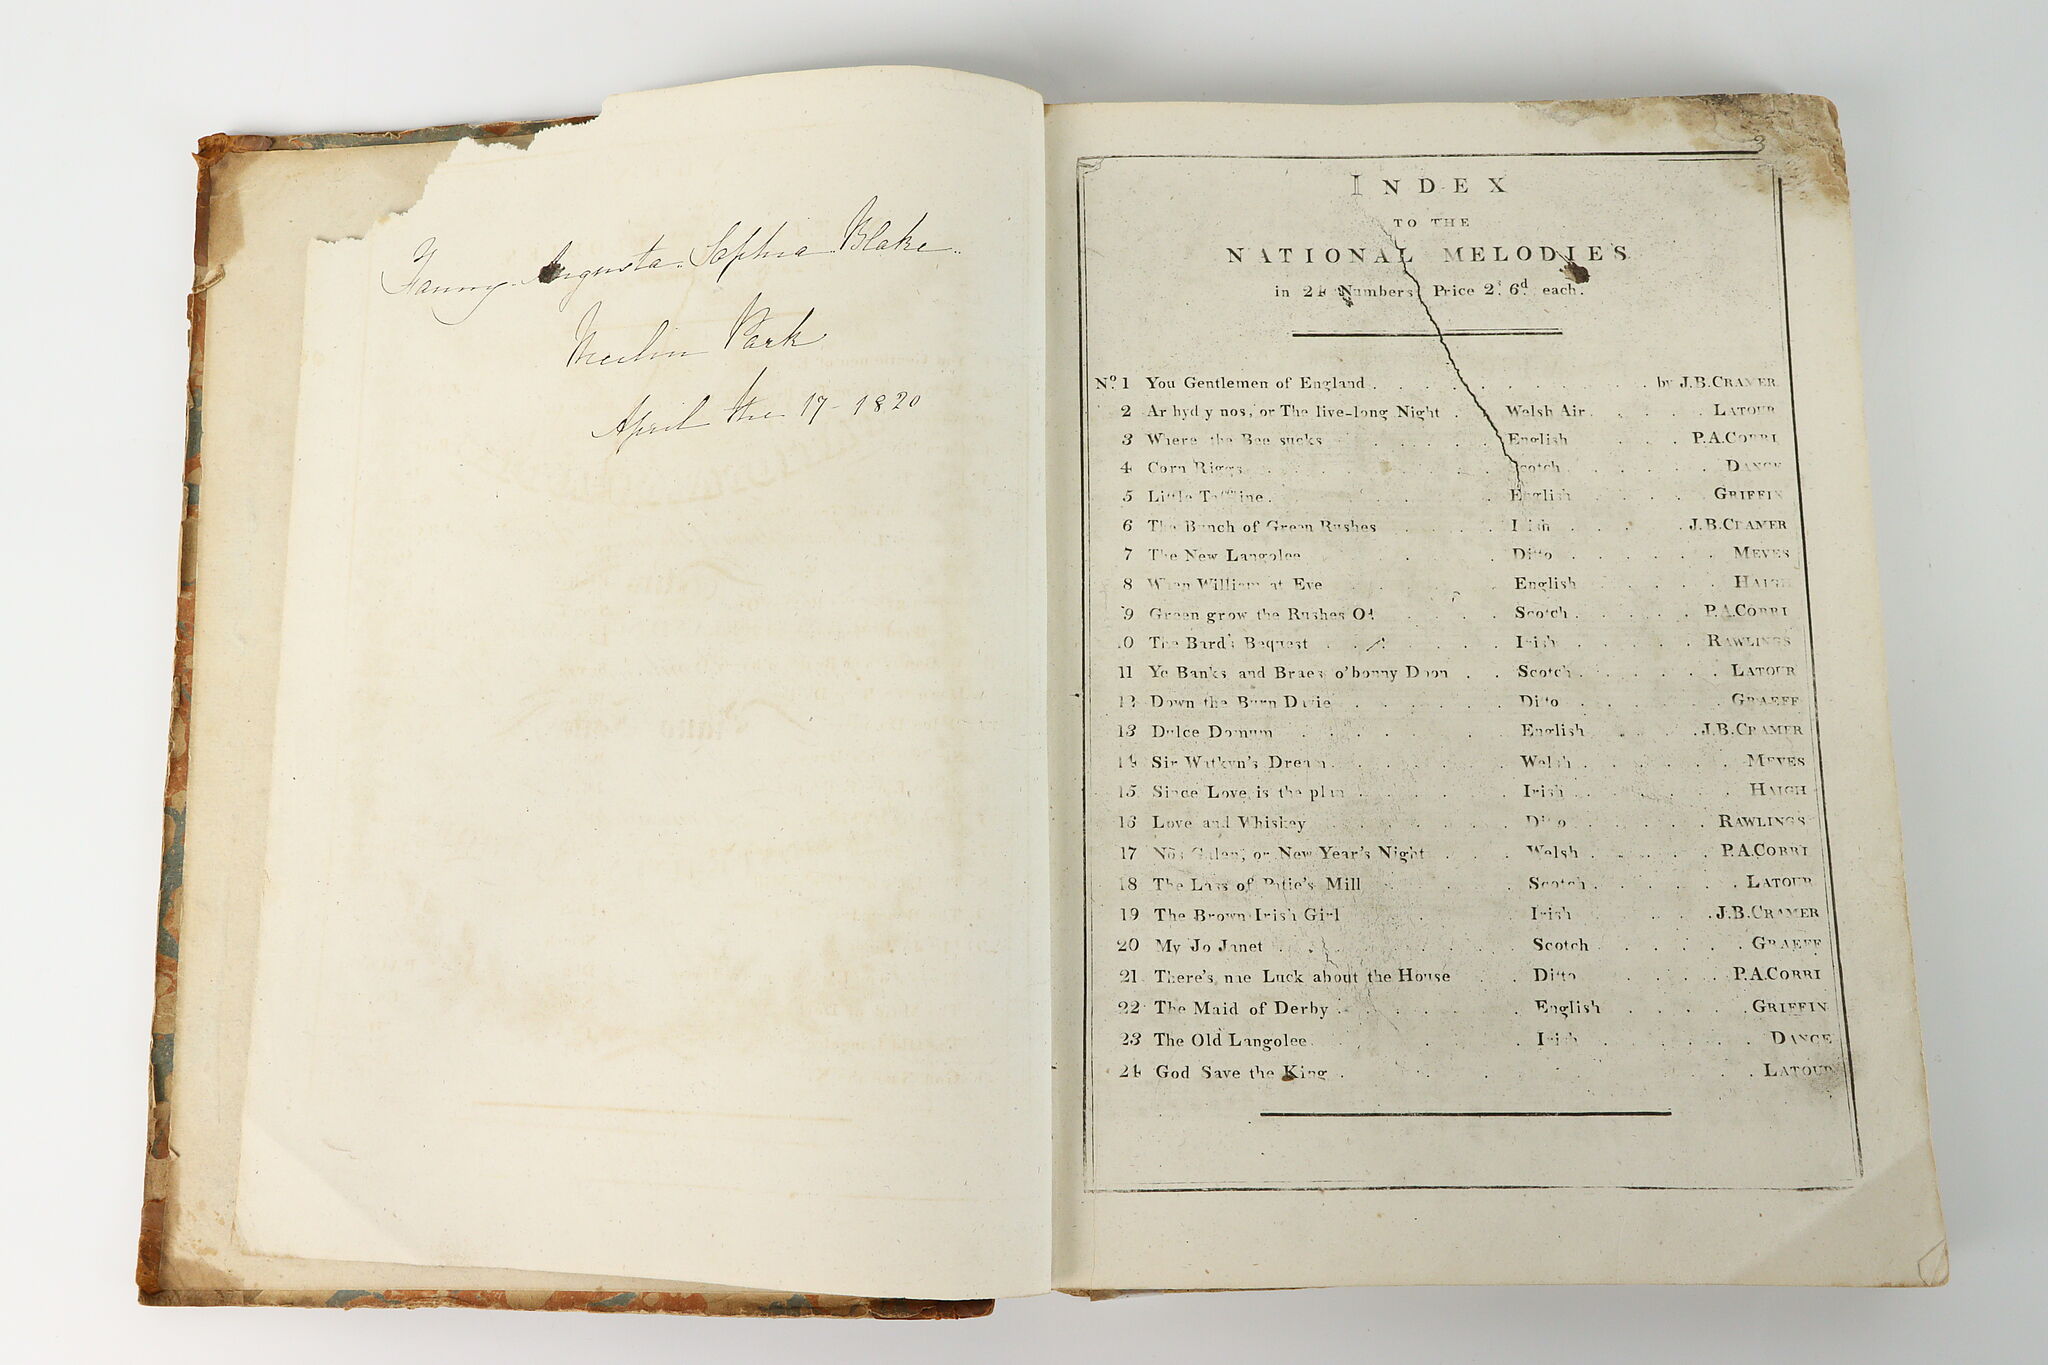 Fanny Augusta Sophia Blake
Merlin Park
April the 17 - 1820
3
INDEX
TO THE
NATIONAL MELODIES
in 24 Numbers Price 2s. 6d. each.
No. 1 You Gentlemen of England . . . by J.B. CRAMER
2 Ar hyd y nos, or The live-long Night . Welsh Air . . . LATOUR
3 Where the Bee sucks . . . English . . . P.A. CORRI
4 Corn Riggs . . . Scotch . . . DANCE
5 Little Taffline . . . English . . . GRIFFIN
6 The Bunch of Green Rushes . . . Irish . . . J.B. CRAMER
7 The New Langolee . . . Ditto . . . MEVES
8 When William at Eve . . . English . . . HAIGH
9 Green grow the Rushes O! . . . Scotch . . . P.A. CORRI
10 The Bard's Bequest . . . Irish . . . RAWLINGS
11 Ye Banks and Braes o' bonny Doon . . Scotch . . . LATOUR
12 Down the Burn Davie . . . Ditto . . . GRAEFF
13 Dulce Domum . . . English . . . J.B. CRAMER
14 Sir Watkyn's Dream . . . Welsh . . . MEVES
15 Since Love is the plan . . . Irish . . . HAIGH
16 Love and Whiskey . . . Ditto . . . RAWLINGS
17 Nos Galen, or New Year's Night . . . Welsh . . . P.A. CORRI
18 The Lass of Patie's Mill . . . Scotch . . . LATOUR
19 The Brown Irish Girl . . . Irish . . . J.B. CRAMER
20 My Jo Janet . . . Scotch . . . GRAEFF
21 There's nae Luck about the House . . Ditto . . . P.A. CORRI
22 The Maid of Derby . . . English . . . GRIFFIN
23 The Old Langolee . . . Irish . . . DANCE
24 God Save the King . . . LATOUR